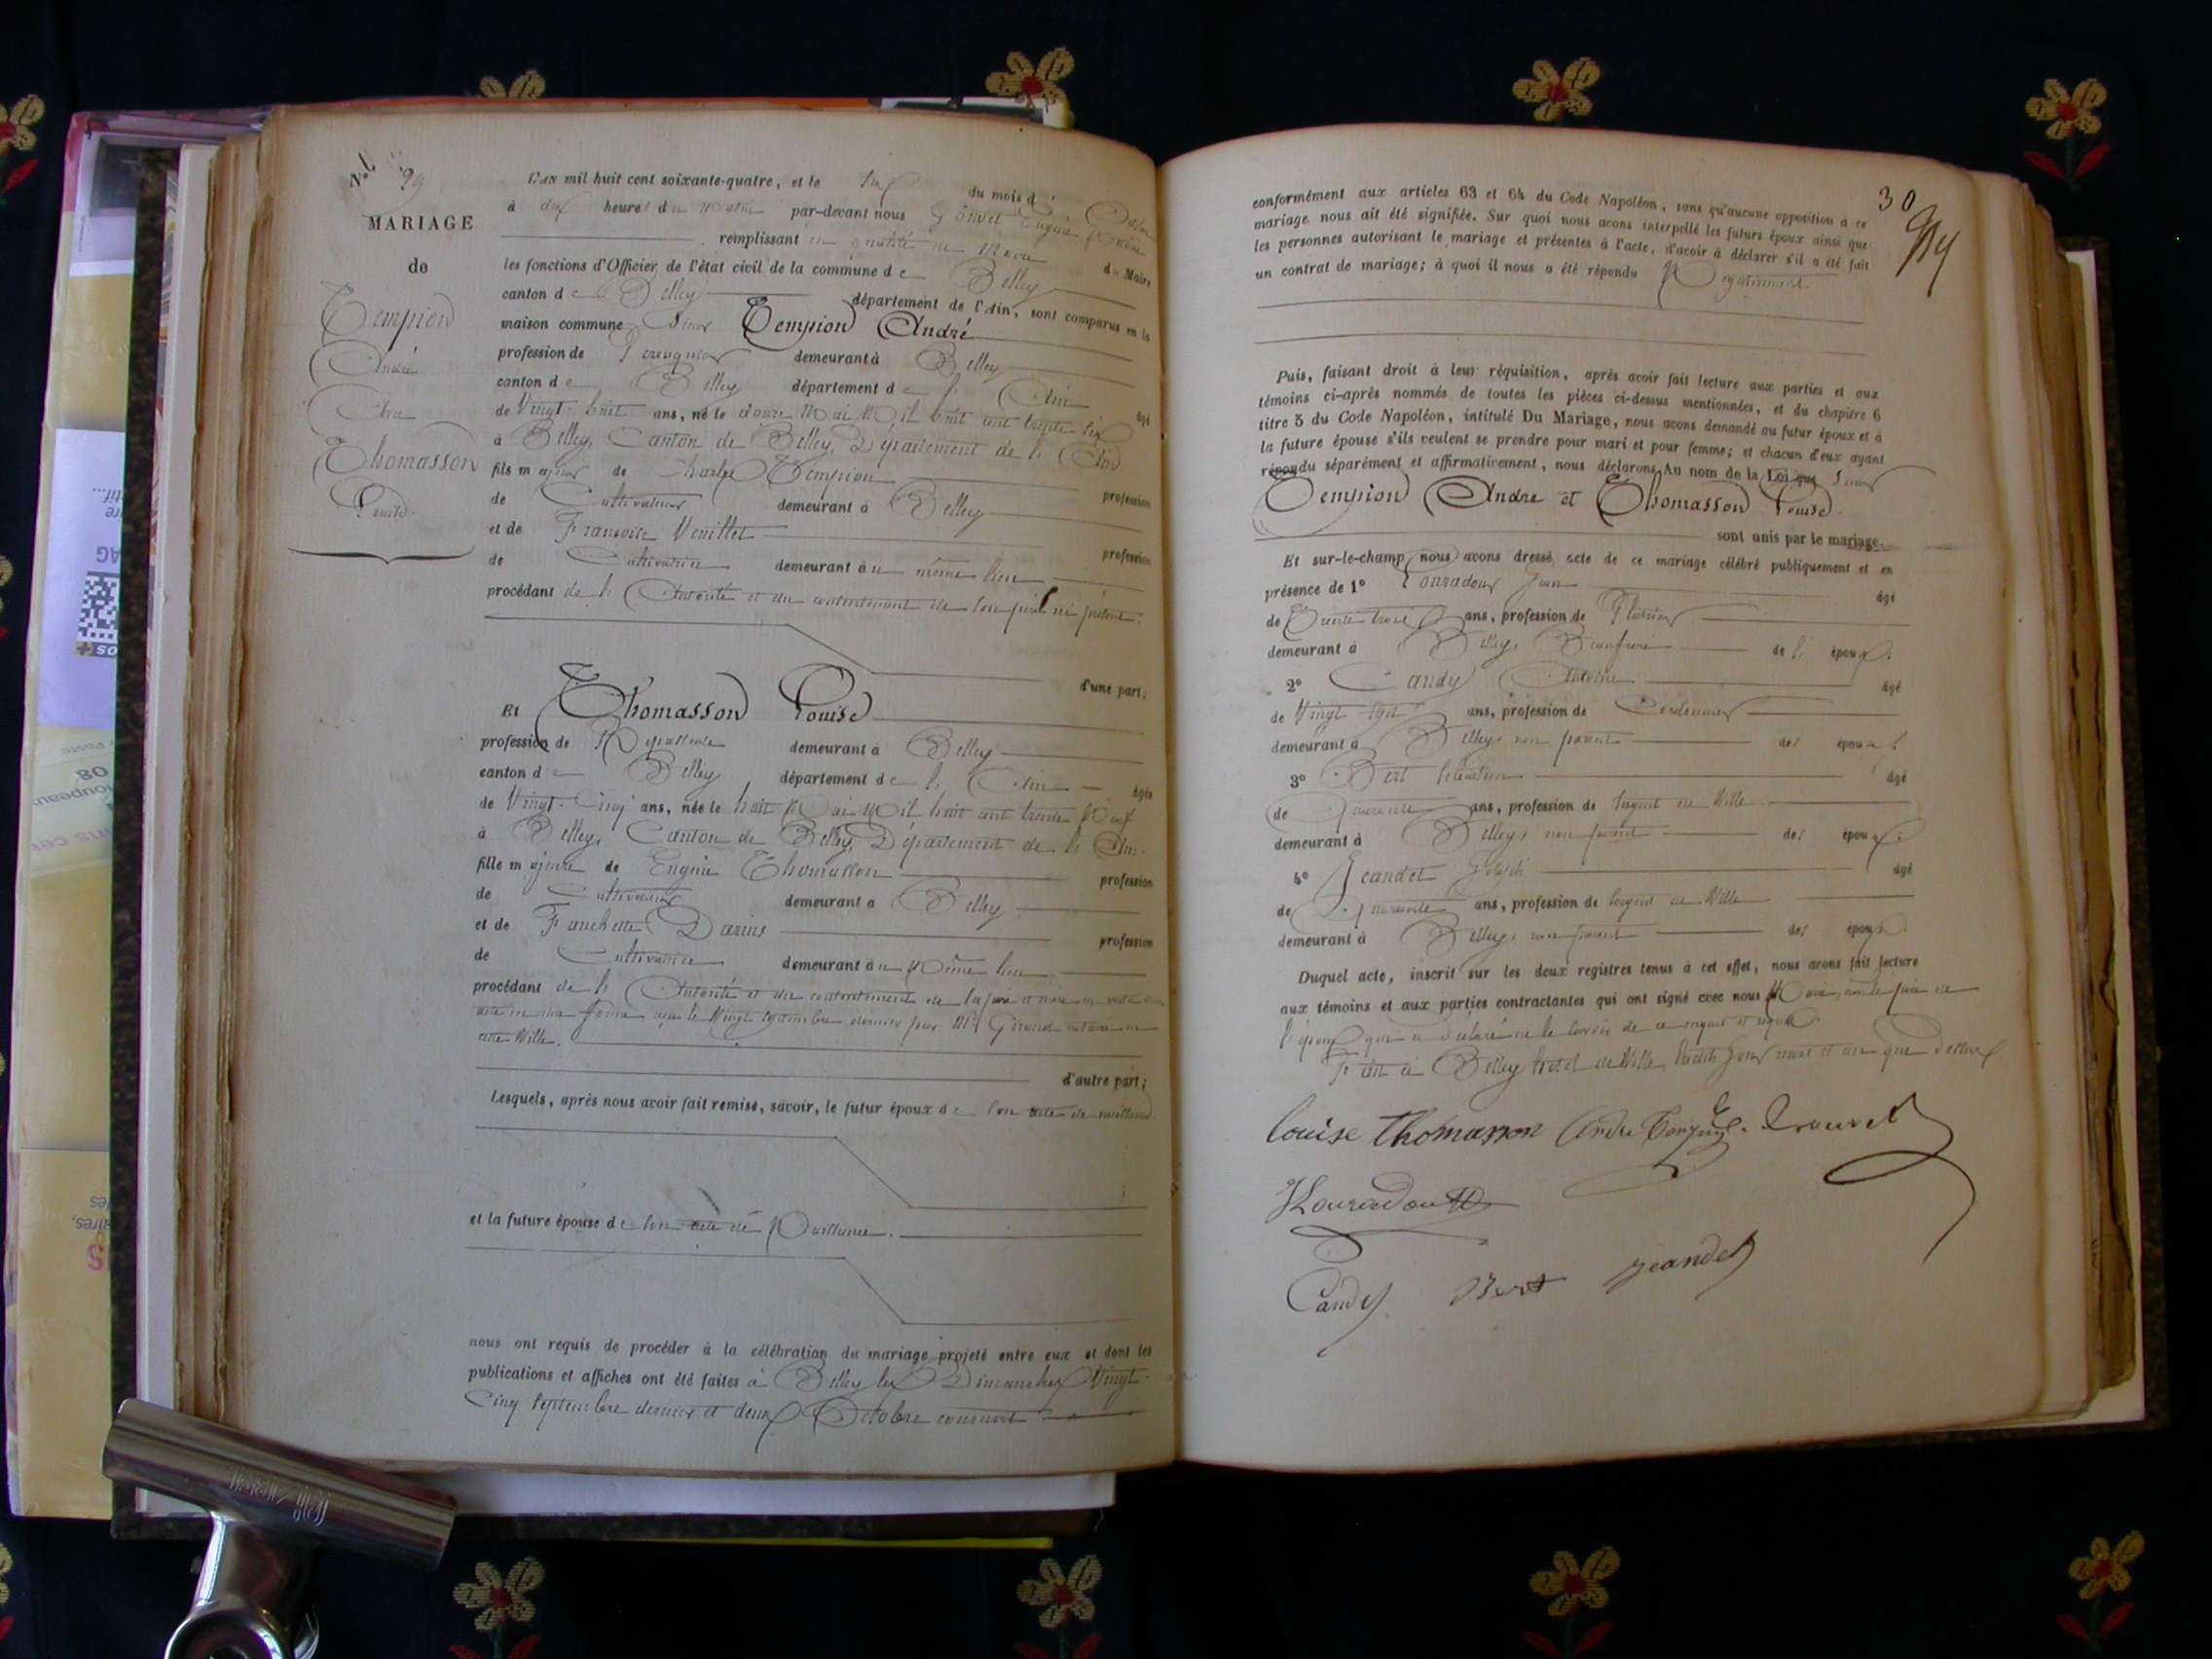 N.º 29
L'AN mil huit cent soixante-quatre, et le six du mois d'Octobre
à dix heures du matin par-devant nous
remplissant en qualité de Maire du Maire
les fonctions d'Officier de l'état civil de la commune de Belley
canton de Belley département de l'Ain, sont comparus en la
maison commune Sieur Tempion André
profession de demeurant à Belley
canton de Belley département de l'Ain âgé
de Vingt-huit ans, né le douze Mai Mil huit cent trente six
à Belley, Canton de Belley, Département de l'Ain
fils majeur de Charles Tempion profession
de Cultivateur demeurant à Belley
et de Françoise profession
de Cultivatrice demeurant au même lieu
procédant de l'Autorité et du consentement de son père ici présent.
d'une part;
MARIAGE
de
Tempion
André
Avec
Thomasson
Louise.
Et Thomasson Louise
profession de Repasseuse demeurant à Belley
canton de Belley département de l'Ain âgée
de Vingt-Cinq ans, née le huit Mai Mil huit cent trente Neuf
à Belley, Canton de Belley, Département de l'Ain.
fille majeure de Eugène Thomasson profession
de Cultivateur demeurant à Belley
et de Fanchette Darius profession
de Cultivatrice demeurant au Même lieu.
procédant de l'Autorité et du consentement de ses père et mère
forme reçu le Vingt septembre dernier par Mᵉ notaire en
cette Ville.
d'autre part;
Lesquels, après nous avoir fait remise, savoir, le futur époux de son acte de naissance.
et la future épouse de son acte de Naissance.
nous ont requis de procéder à la célébration du mariage projeté entre eux et dont les
publications et affiches ont été faites à Belley les Dimanches Vingt-
Cinq septembre dernier et deux Octobre courant
30
conformément aux articles 63 et 64 du Code Napoléon, sans qu'aucune opposition à ce
mariage nous ait été signifiée. Sur quoi nous avons interpellé les futurs époux ainsi que
les personnes autorisant le mariage et présentes à l'acte, d'avoir à déclarer s'il a été fait
un contrat de mariage; à quoi il nous a été répondu Négativement.
Puis, faisant droit à leur réquisition, après avoir fait lecture aux parties et aux
témoins ci-après nommés de toutes les pièces ci-dessus mentionnées, et du chapitre 6
titre 5 du Code Napoléon, intitulé Du Mariage, nous avons demandé au futur époux et à
la future épouse s'ils veulent se prendre pour mari et pour femme; et chacun d'eux ayant
répondu séparément et affirmativement, nous déclarons Au nom de la Loi que Sieur
Tempion André et Thomasson Louise.
sont unis par le mariage.
Et sur-le-champ nous avons dressé acte de ce mariage célébré publiquement et en
présence de 1º Jean âgé
de Trente trois ans, profession de
demeurant à Belley, Beaufrère de l'époux.
2º Candy Antoine âgé
de Vingt-sept ans, profession de Cordonnier
demeurant à Belley, non parent des époux
3º Bert Sébastien âgé
de Quarante ans, profession de Sergent de Ville
demeurant à Belley, non parent des époux.
4º Jeandet Joseph âgé
de Quarante ans, profession de Sergent de Ville
demeurant à Belley, non parent des époux
Duquel acte, inscrit sur les deux registres tenus à cet effet, nous avons fait lecture
aux témoins et aux parties contractantes qui ont signé avec nous Maire, non le père de
l'époux qui a déclaré ne le savoir de ce enquis et requis.
Fait à Belley hotel de Ville, lesdits jour mois et an que dessus
Louise Thomasson André
Candy Bert Jeandet